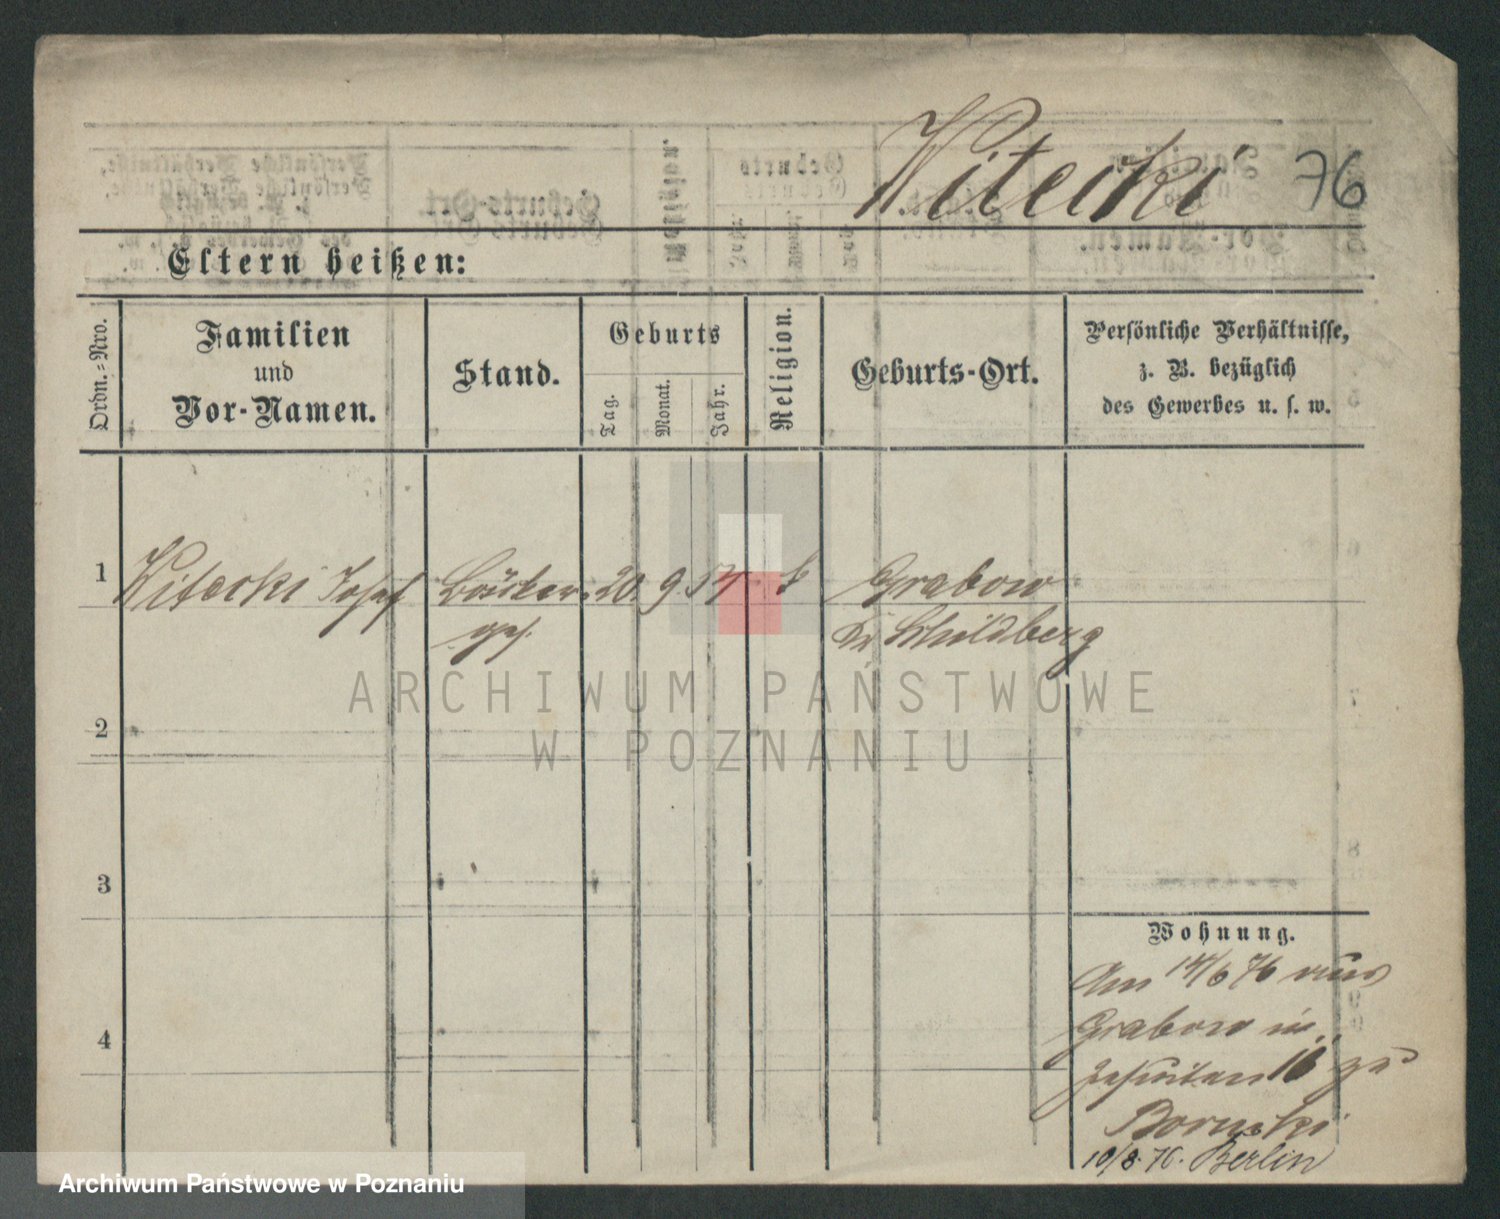 Witecki 76
Eltern heißen:
Ordn.-Nro.
Familien
und
Vor-Namen.
Stand.
Geburts
Tag.
Monat.
Jahr.
Religion.
Geburts-Ort.
Persönliche Verhältnisse,
z. B. bezüglich
des Gewerbes u. s. w.
1 Witecki Josef 20. 9. 57 k Grabow
Kr Schildberg
2
3
4
Wohnung.
Am 14/6 76 aus
Grabow in
Jesuiten 16 zu
10/8. 76. Berlin
ARCHIWUM PAŃSTWOWE
W POZNANIU
Archiwum Państwowe w Poznaniu